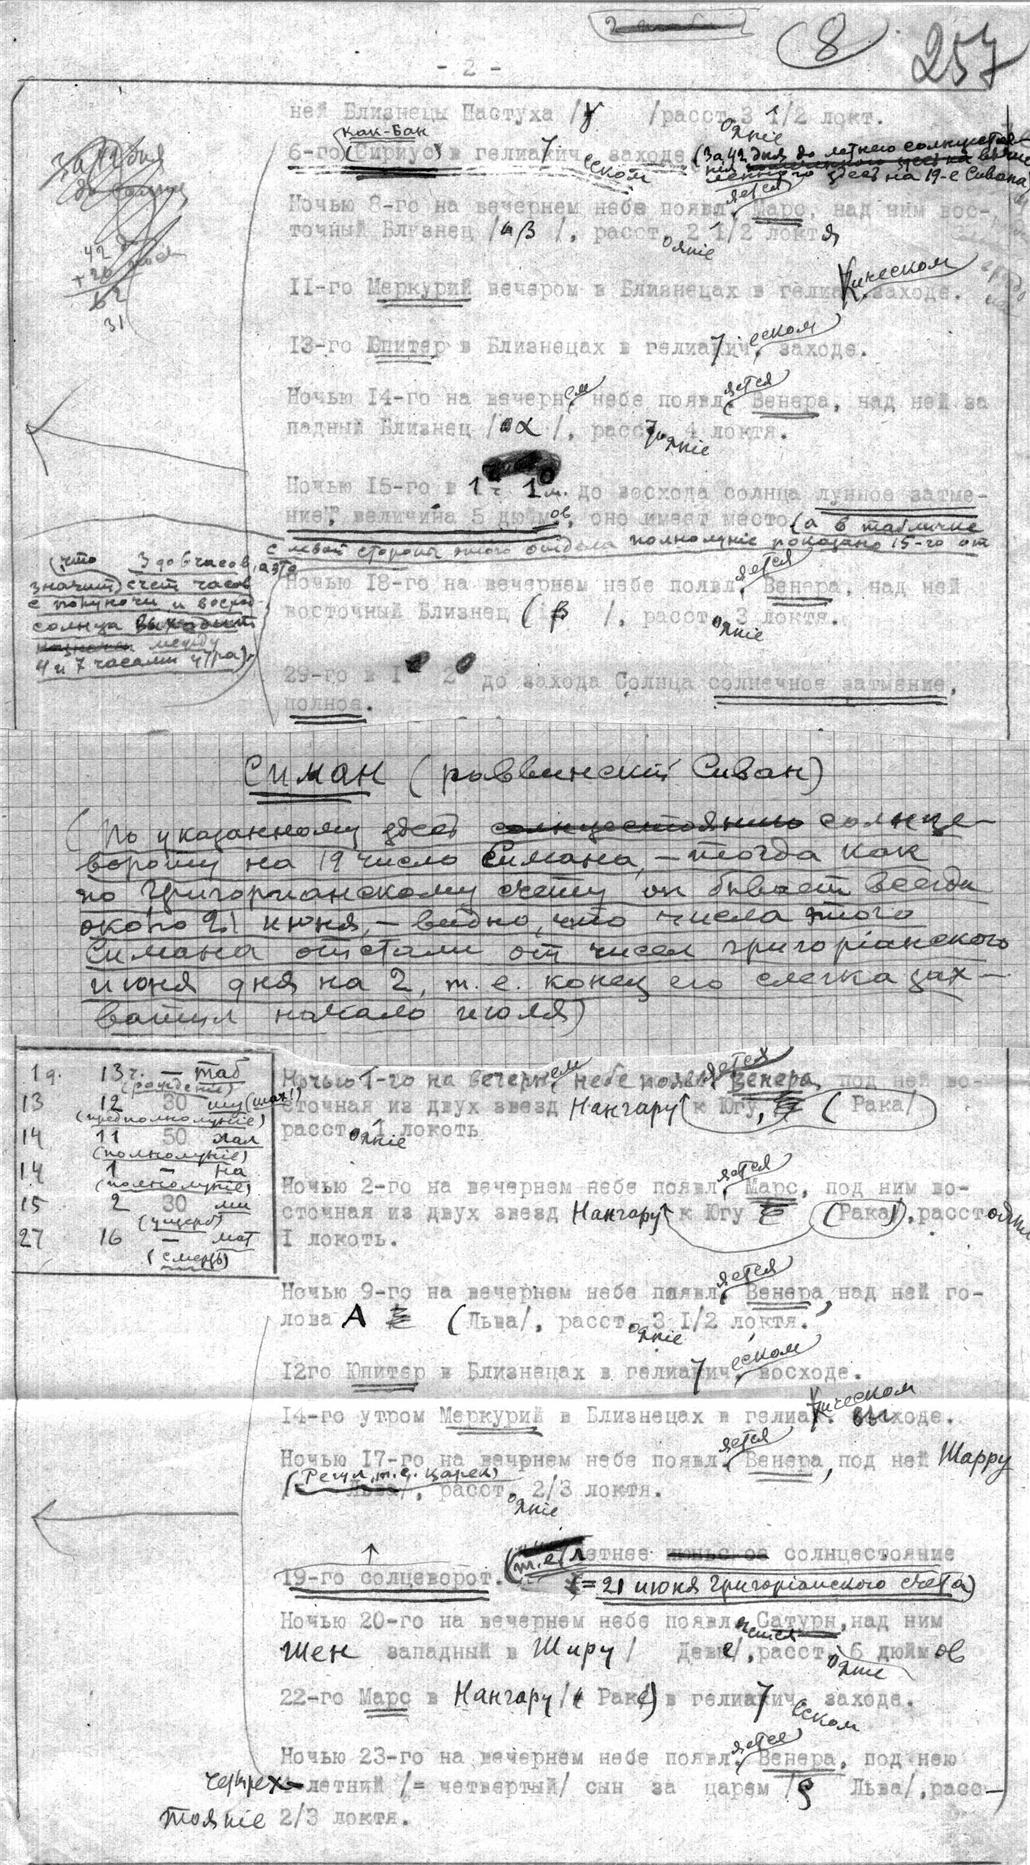 8
257
- 2 -
ней Близнецы Пастуха /γ /расст. 3 1/2 локт.
Как-Бан
ояніе
6-го (Сириус) в гелиакич еском заходе (За 42 дня до летнего солнцестоя
ния
здесь на 19-е Сивана)
За 42 дня
42
62
31
Ночью 8-го на вечернем небе появляется Марс, над ним вос-
точный Близнец /β /, расстояніе 2 1/2 локтя
11-го Меркурий вечером в Близнецах в гелиакическом заходе.
13-го Юпитер в Близнецах в гелиакическом заходе.
Ночью 14-го на вечернем небе появляется Венера, над ней за
падный Близнец /α /, расстояніе 4 локтя.
Ночью 15-го в 1 ч 10 м. до восхода солнца лунное затме-
ние, величина 5 дюймов, оно имеет место (а в табличке
с левой стороны этого отдела полнолуніе показано 15-го от
3 до 6 часов, а это
(что
значит) счет часов
с полуночи и восход
солнца
между
4 и 7 часами утра).
Ночью 18-го на вечернем небе появляется Венера, над ней
восточный Близнец (β /, расстояніе 3 локтя.
29-го в 1 20 до захода Солнца солнечное затмение,
полное.
Симан (раввинский Сиван)
(По указанному здесь солнцестоянию солнце-
вороту на 19 число Симана, – тогда как
по Григорианскому счету он бывает всегда
около 21 июня, – видно, что числа этого
Симана отстали от чисел григоріанского
июня дня на 2, т. е. конец его слегка зах-
ватил начало июля)
1 д. 13 ч. – таб
(рождение)
13 12 30 шу (шах!)
(предполнолуніе)
14 11 50 лал
(полнолуніе)
14 1 – на
(полнолуніе)
15 2 30 ми
(ущерб)
27 16 – мат
(смерть)
Ночью 1-го на вечернем небе появляется Венера, под ней во-
сточная из двух звезд Нангару к Югу, (Рака/
расстояніе 1 локоть
Ночью 2-го на вечернем небе появляется Марс, под ним во-
сточная из двух звезд Нангару к Югу (Рака), расст
1 локоть.
Ночью 9-го на вечернем небе появляется Венера, над ней го-
лова А (Льва/, расстояніе 3 1/2 локтя.
12го Юпитер в Близнецах в гелиакическом восходе.
14-го утром Меркурий в Близнецах в гелиакическом выходе.
Ночью 17-го на вечрнем небе появляется Венера, под ней Шарру
(Регул, т.е. царек)
/ Льва/, расстояніе 2/3 локтя.
(т.е. летнее солнцестояние
19-го солцеворот. (= 21 июня Григоріанского счета)
Ночью 20-го на вечернем небе появляется Сатурн, над ним
Шен западный в Ширу / Девы/, расстояніе 6 дюймов
22-го Марс в Нангару /Рак/) в гелиакическом заходе.
Ночью 23-го на вечернем небе появляется Венера, под нею
четырех-летний /= четвертый/ сын за царем /ρ Льва/, расс-
тояніе 2/3 локтя.